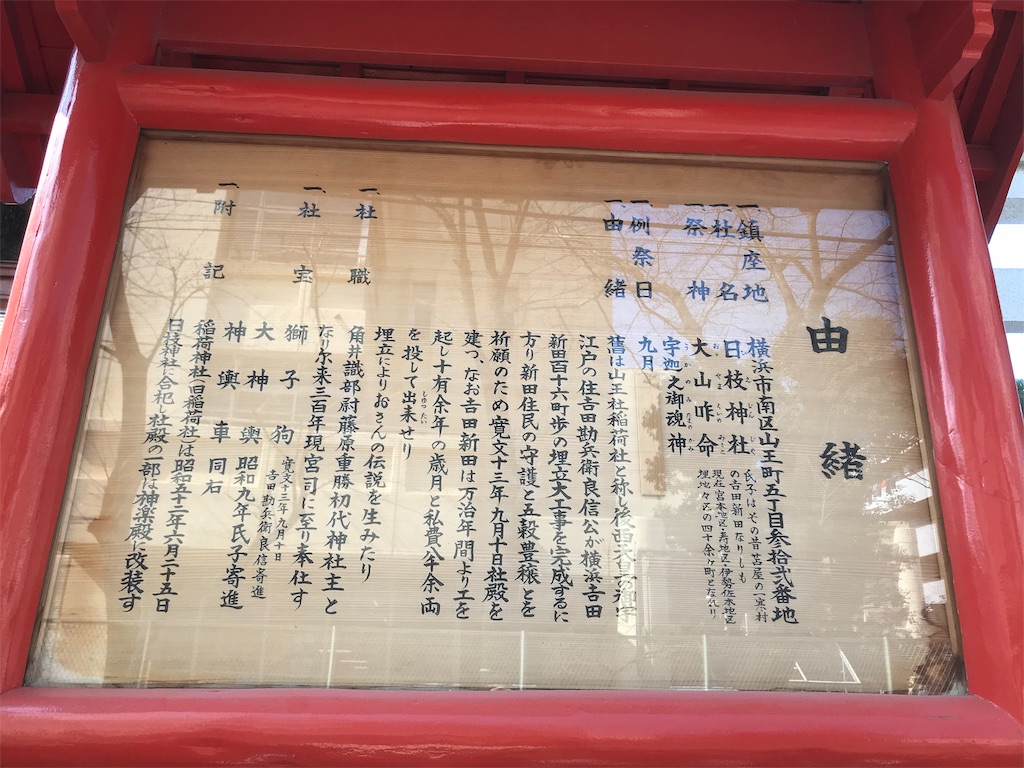 由緒
一、鎮座地 横浜市南区山王町五丁目参拾弐番地
一、社名 日枝神社
氏子はその昔苫屋の一寒村
の吉田新田なりしも
現在宮本地区・寿地区・伊勢佐木地区
埋地々区の四十余ヶ町となれり
一、祭神 大山咋命
宇迦之御魂神
一、例祭日 九月
一、由緒 旧は山王社稲荷社と称し後
江戸の住吉田勘兵衛良信公が横浜吉田
新田百十六町歩の埋立大工事を完成するに
方り新田住民の守護と五穀豊穣とを
祈願のため寛文十三年九月十日社殿を
建つ、なお吉田新田は万治年間より工を
起し十有余年の歳月と私費八千余両
を投して出来せり
埋立によりおさんの伝説を生みたり
一、社職 角井識部尉藤原重勝初代神社主と
なり尓来三百年現宮司に至り奉仕す
一、社宝 獅子狗 寛文十三年九月十日
吉田勘兵衛良信寄進
大神輿 昭和九年氏子寄進
神輿車 同右
一、附記 稲荷神社(旧稲荷社)は昭和五十二年六月二十五日
日枝神社へ合祀し社殿の一部は神楽殿に改装す